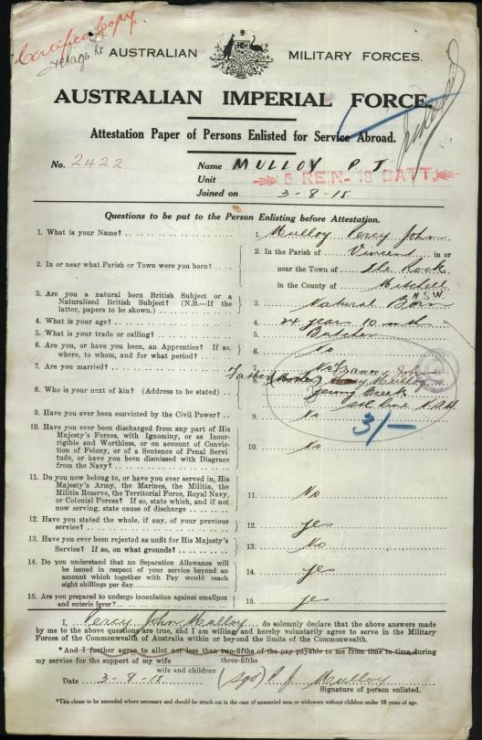 Certified Copy
AUSTRALIAN MILITARY FORCES.
AUSTRALIAN IMPERIAL FORCE.
Attestation Paper of Persons Enlisted for Service Abroad.
No. 2422 Name MULLOY P J
Unit 5 REIN- 18 BATT.
Joined on 3-8-15
Questions to be put to the Person Enlisting before Attestation.
1. What is your Name? 1. Mulloy Percy John
2. In or near what Parish or Town were you born? 2. In the Parish of Vincent in or
near the Town of The Rock
in the County of Mitchell
N.S.W.
3. Are you a natural born British Subject or a
Naturalized British Subject? (N.B.—If the
latter, papers to be shown.) 3. Natural Born
4. What is your age? 4. 24 year 10 mth
5. What is your trade or calling? 5. Butcher
6. Are you, or have you been, an Apprentice? If so,
where, to whom, and for what period? 6. No
7. Are you married? 7. No
8. Who is your next of kin? (Address to be stated) 8. Father Mulloy
9. Have you ever been convicted by the Civil Power? 9. No
3/-
10. Have you ever been discharged from any part of His
Majesty's Forces, with Ignominy, or as Incor-
rigible and Worthless, or on account of Convic-
tion of Felony, or of a Sentence of Penal Servi-
tude, or have you been dismissed with Disgrace
from the Navy? 10. No
11. Do you now belong to, or have you ever served in, His
Majesty's Army, the Marines, the Militia, the
Militia Reserve, the Territorial Force, Royal Navy,
or Colonial Forces? If so, state which, and if not
now serving, state cause of discharge 11. No
12. Have you stated the whole, if any, of your previous
service? 12. yes
13. Have you ever been rejected as unfit for His Majesty's
Service? If so, on what grounds? 13. No
14. Do you understand that no Separation Allowance will
be issued in respect of your service beyond an
amount which together with Pay would reach
eight shillings per day. 14. yes
15. Are you prepared to undergo inoculation against smallpox
and enteric fever? 15. yes
I, Percy John Mulloy do solemnly declare that the above answers made
by me to the above questions are true, and I am willing and hereby voluntarily agree to serve in the Military
Forces of the Commonwealth of Australia within or beyond the limits of the Commonwealth.
*And I further agree to allot not less than two-fifths of the pay payable to me from time to time during
three-fifths
my service for the support of my wife
wife and children
Date 3-8-15 (Sgd) P. J. Mulloy
Signature of person enlisted.
*This clause to be amended where necessary and should be struck out in the case of unmarried men or widowers without children under 18 years of age.